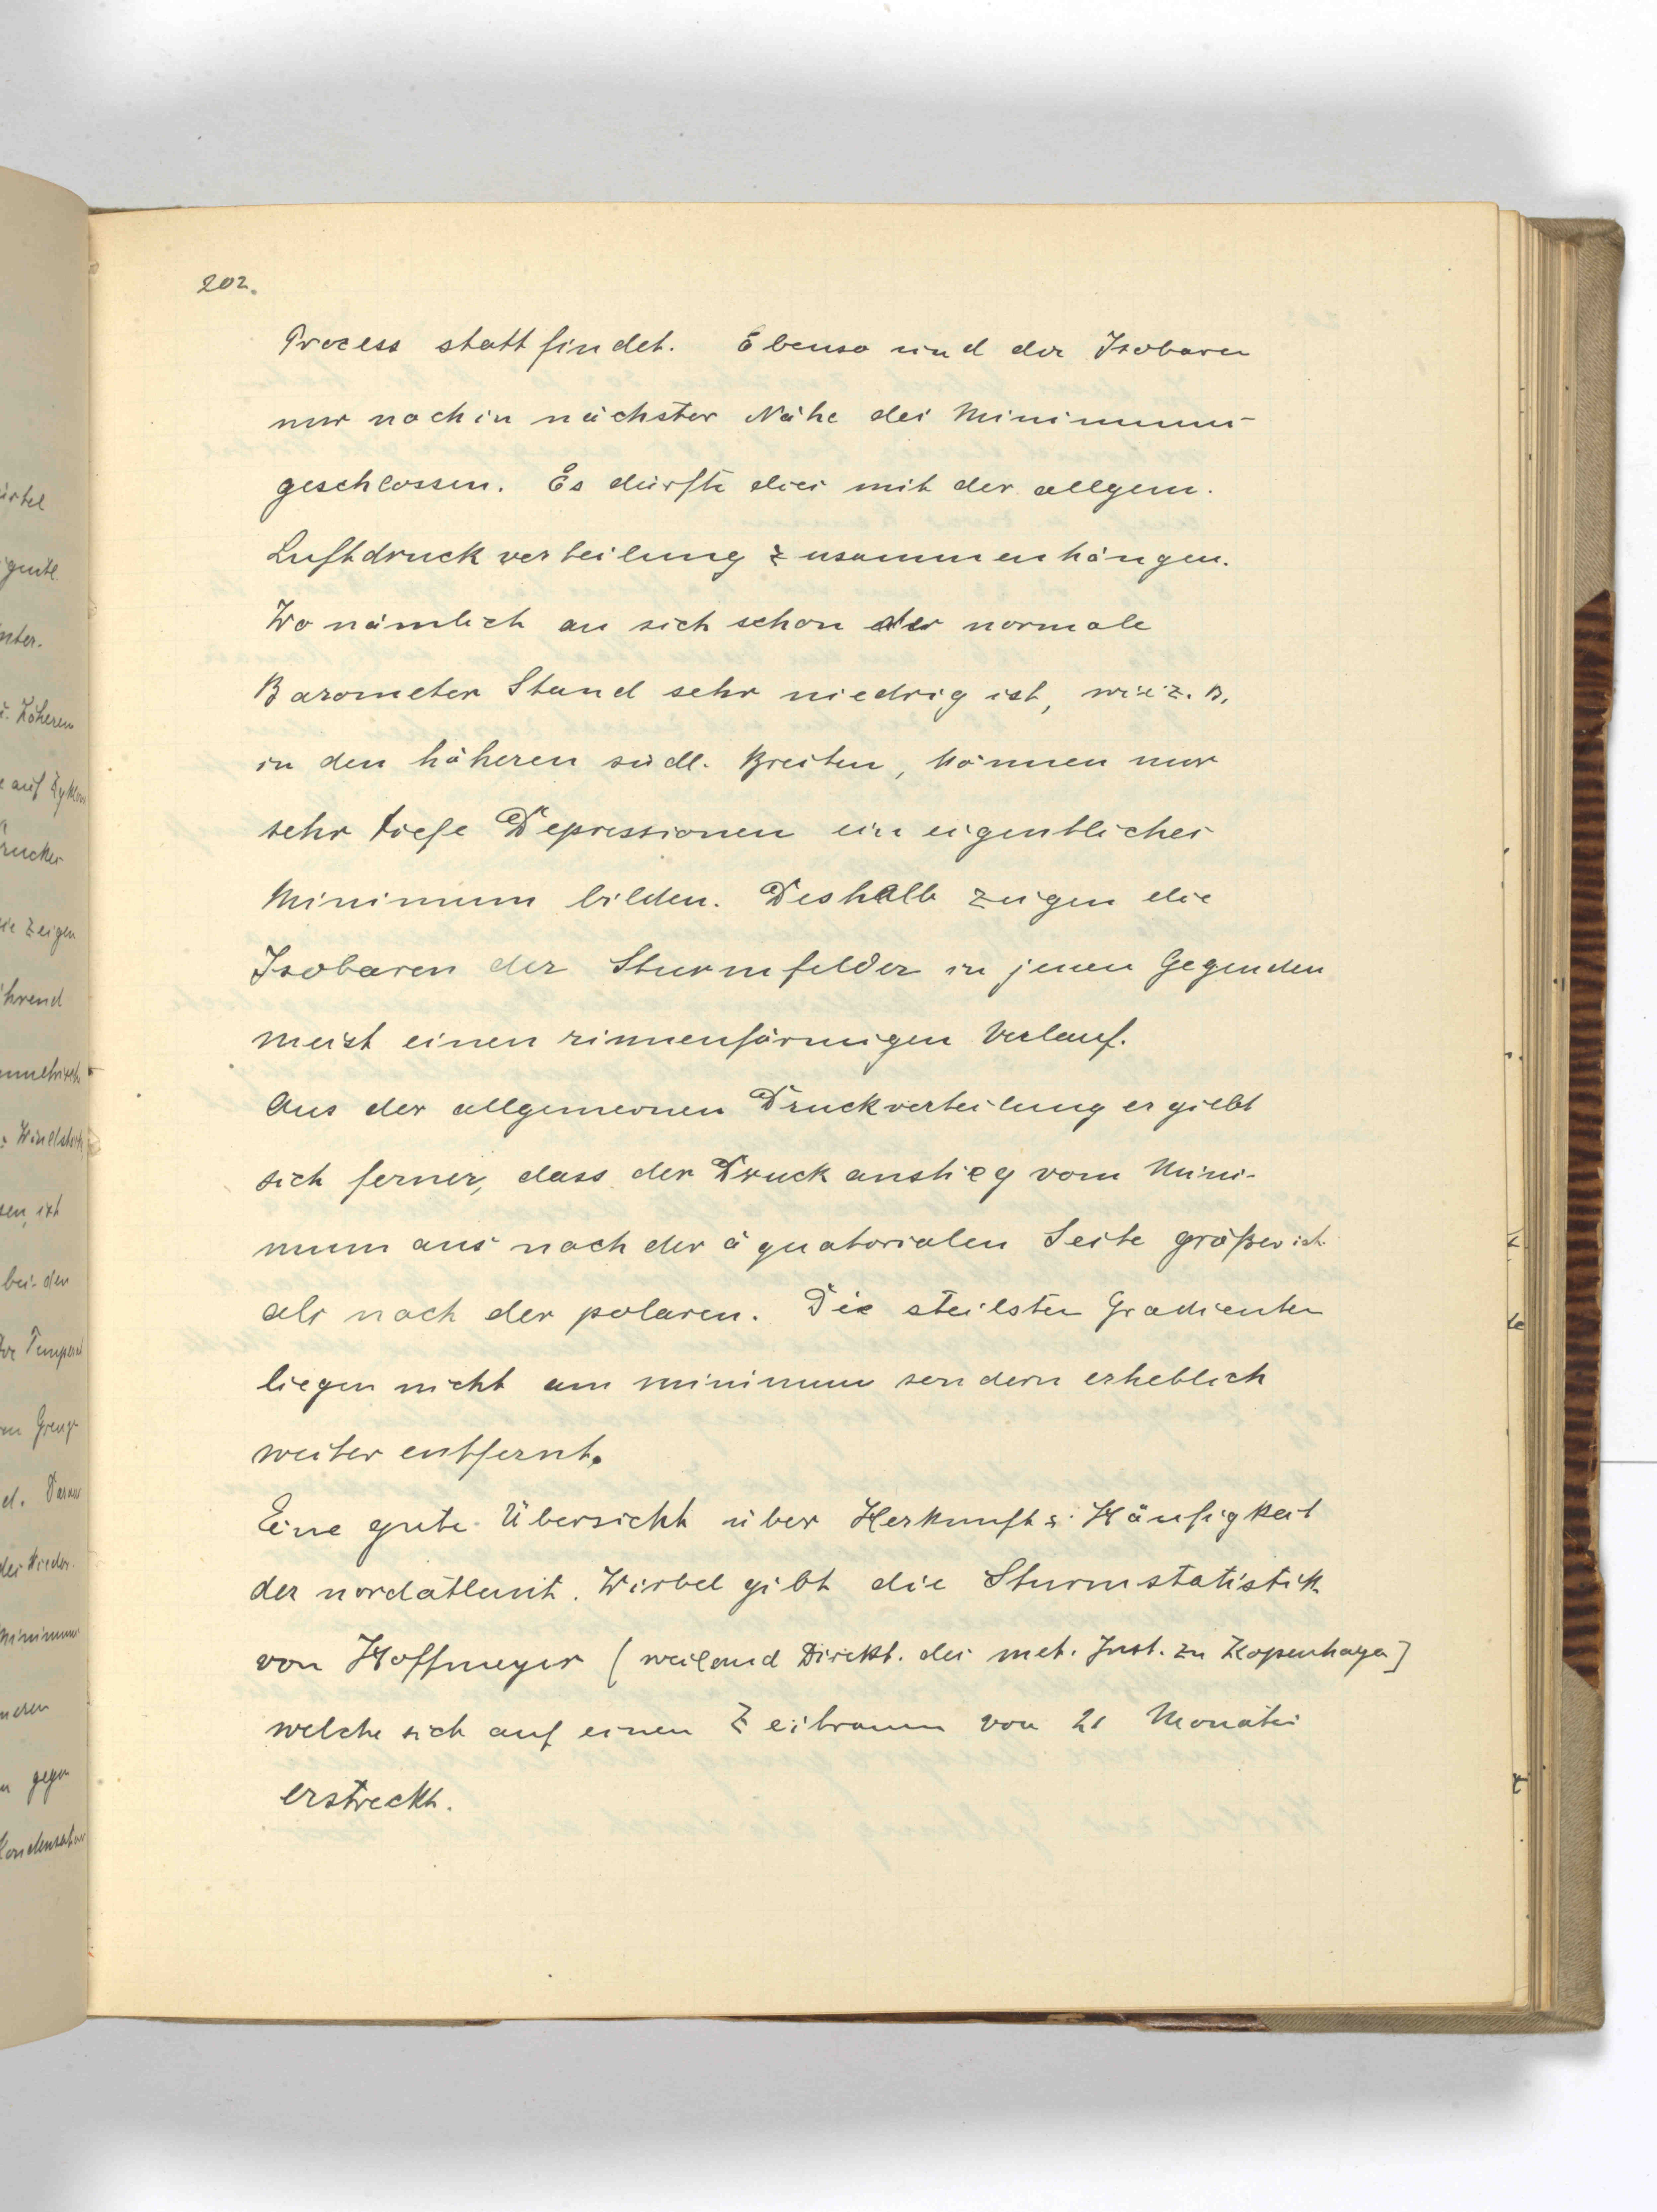 202.
Process statt findet. Ebenso sind der Isobaren
nur noch in nächster Nähe des Minimums
geschlossen. Es dürfte dies mit der allgem.
Luftdruckverteilung zusammenhängen.
Wo nämlich an sich schon der normale
Barometer Stand sehr niedrig ist, wie z. B.
in den höheren südl. Breiten, können nur
sehr tiefe Depressionen ein eigentliches
Minimum bilden. Deshalb zeigen die
Isobaren der Sturmfelder in jenen Gegenden
meist einen rinnenförmigen Verlauf.
Aus der allgemeinen Druckverteilung ergiebt
sich ferner, dass der Druckanstieg vom Mini-
mum aus nach der äquatorialen Seite größer ist
als nach der polaren. Die steilsten Gradienten
liegen nicht am minimum sondern erheblich
weiter entfernt.
Eine gute Übersicht über Herkunft & Häufigkeit
der nordatlant. Wirbel gibt die Sturmstatistik
von Hoffmeyer (weiland Direkt. des met. Inst. zu Kopenhagen)
welche sich auf einen Zeitraum von 21 Monaten
erstreckt.